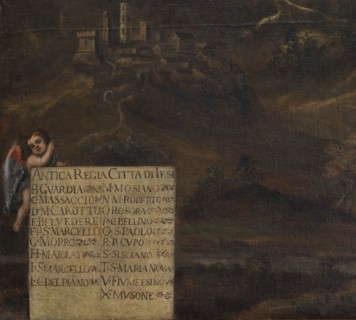 ANTICA REGIA CITTA DI IESI
B GVARDIA M MOSIANO
C MASSACCIO N M ROBERTO
D M CAROTTO O ROSORA
E BELVEDERE P BELLINO
F S MARCELLO Q S PAOLO
G MORRO R P CVPO
H MAIOLATI S SISCIANO
I S MARCELLO T S MARIA NOVA
L C DEL PIANO V FIVME ESINO
X MVSONE